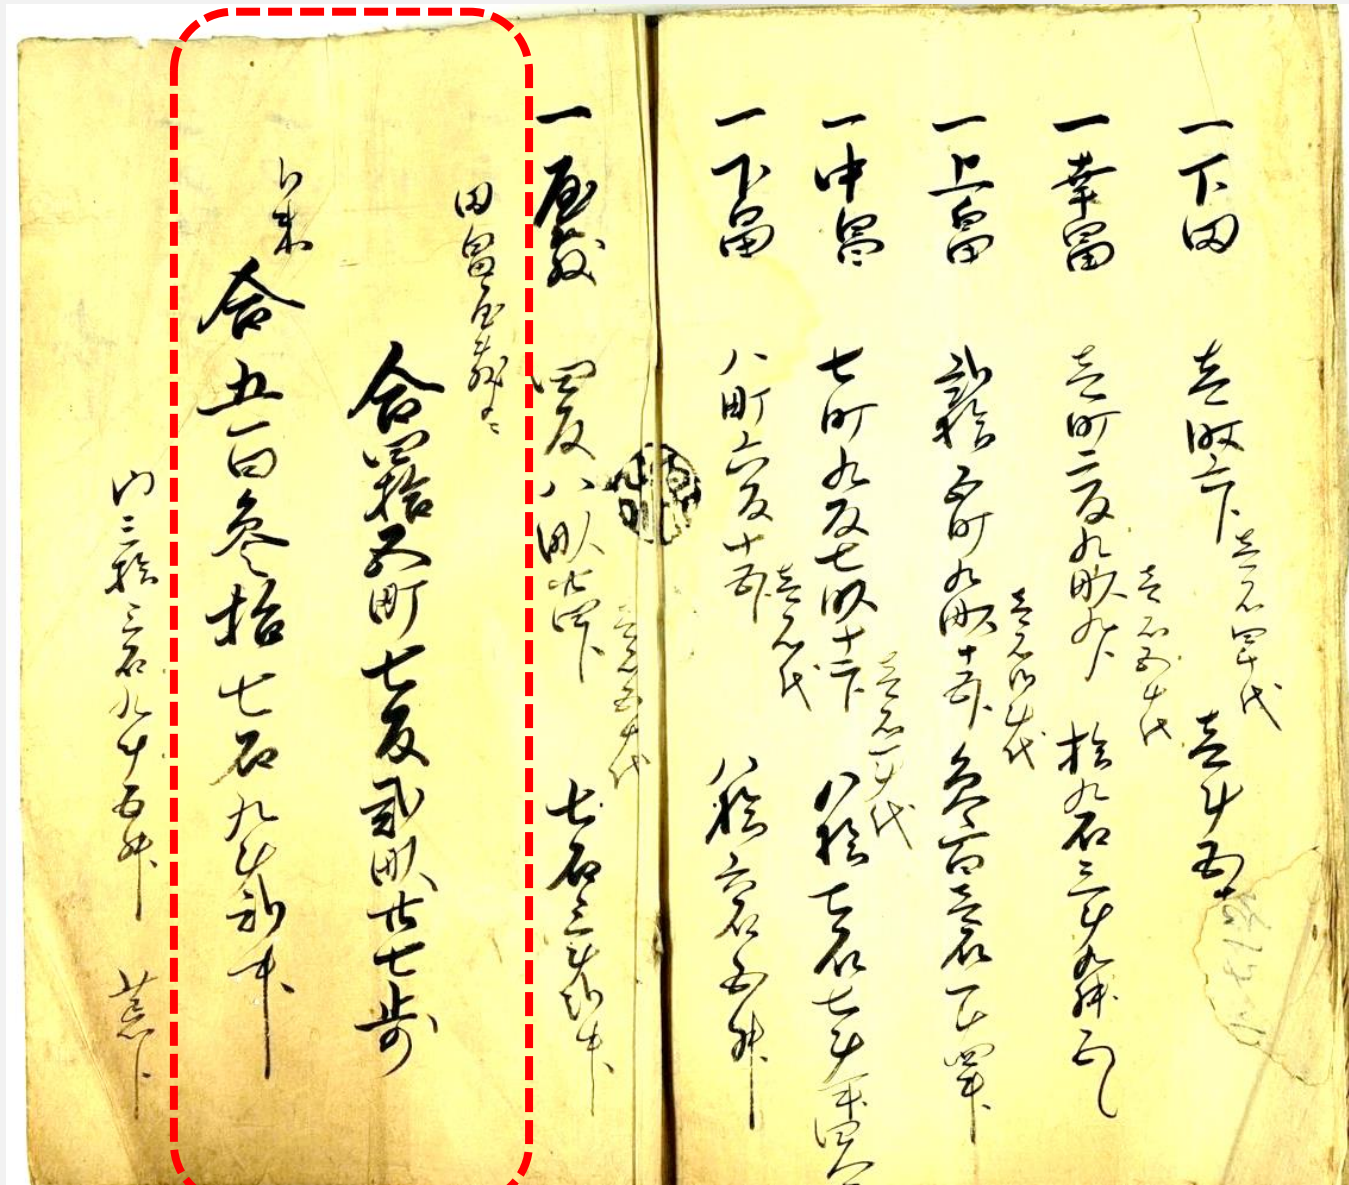 一下田
壱石四斗代
壱斗五升
一幸畠
壱町二反九畝九卜
壱石五斗代
拾九石三斗九升五
一上畠
弐拾五町九畝十五卜
壱石弐斗代
参百壱石
一中畠
七町九反七畝十二卜
壱石一斗代
八拾七石七斗
一下畠
八町六反十五卜
壱石代
八拾六石五升
一屋敷
四反八畝廿四卜
壱石五斗代
七石三斗弐升
田畠屋敷共ニ
合四拾五町七反弐畝廿七歩
分米
合五百参拾七石九斗弐升
内三拾三石九斗五升
荒